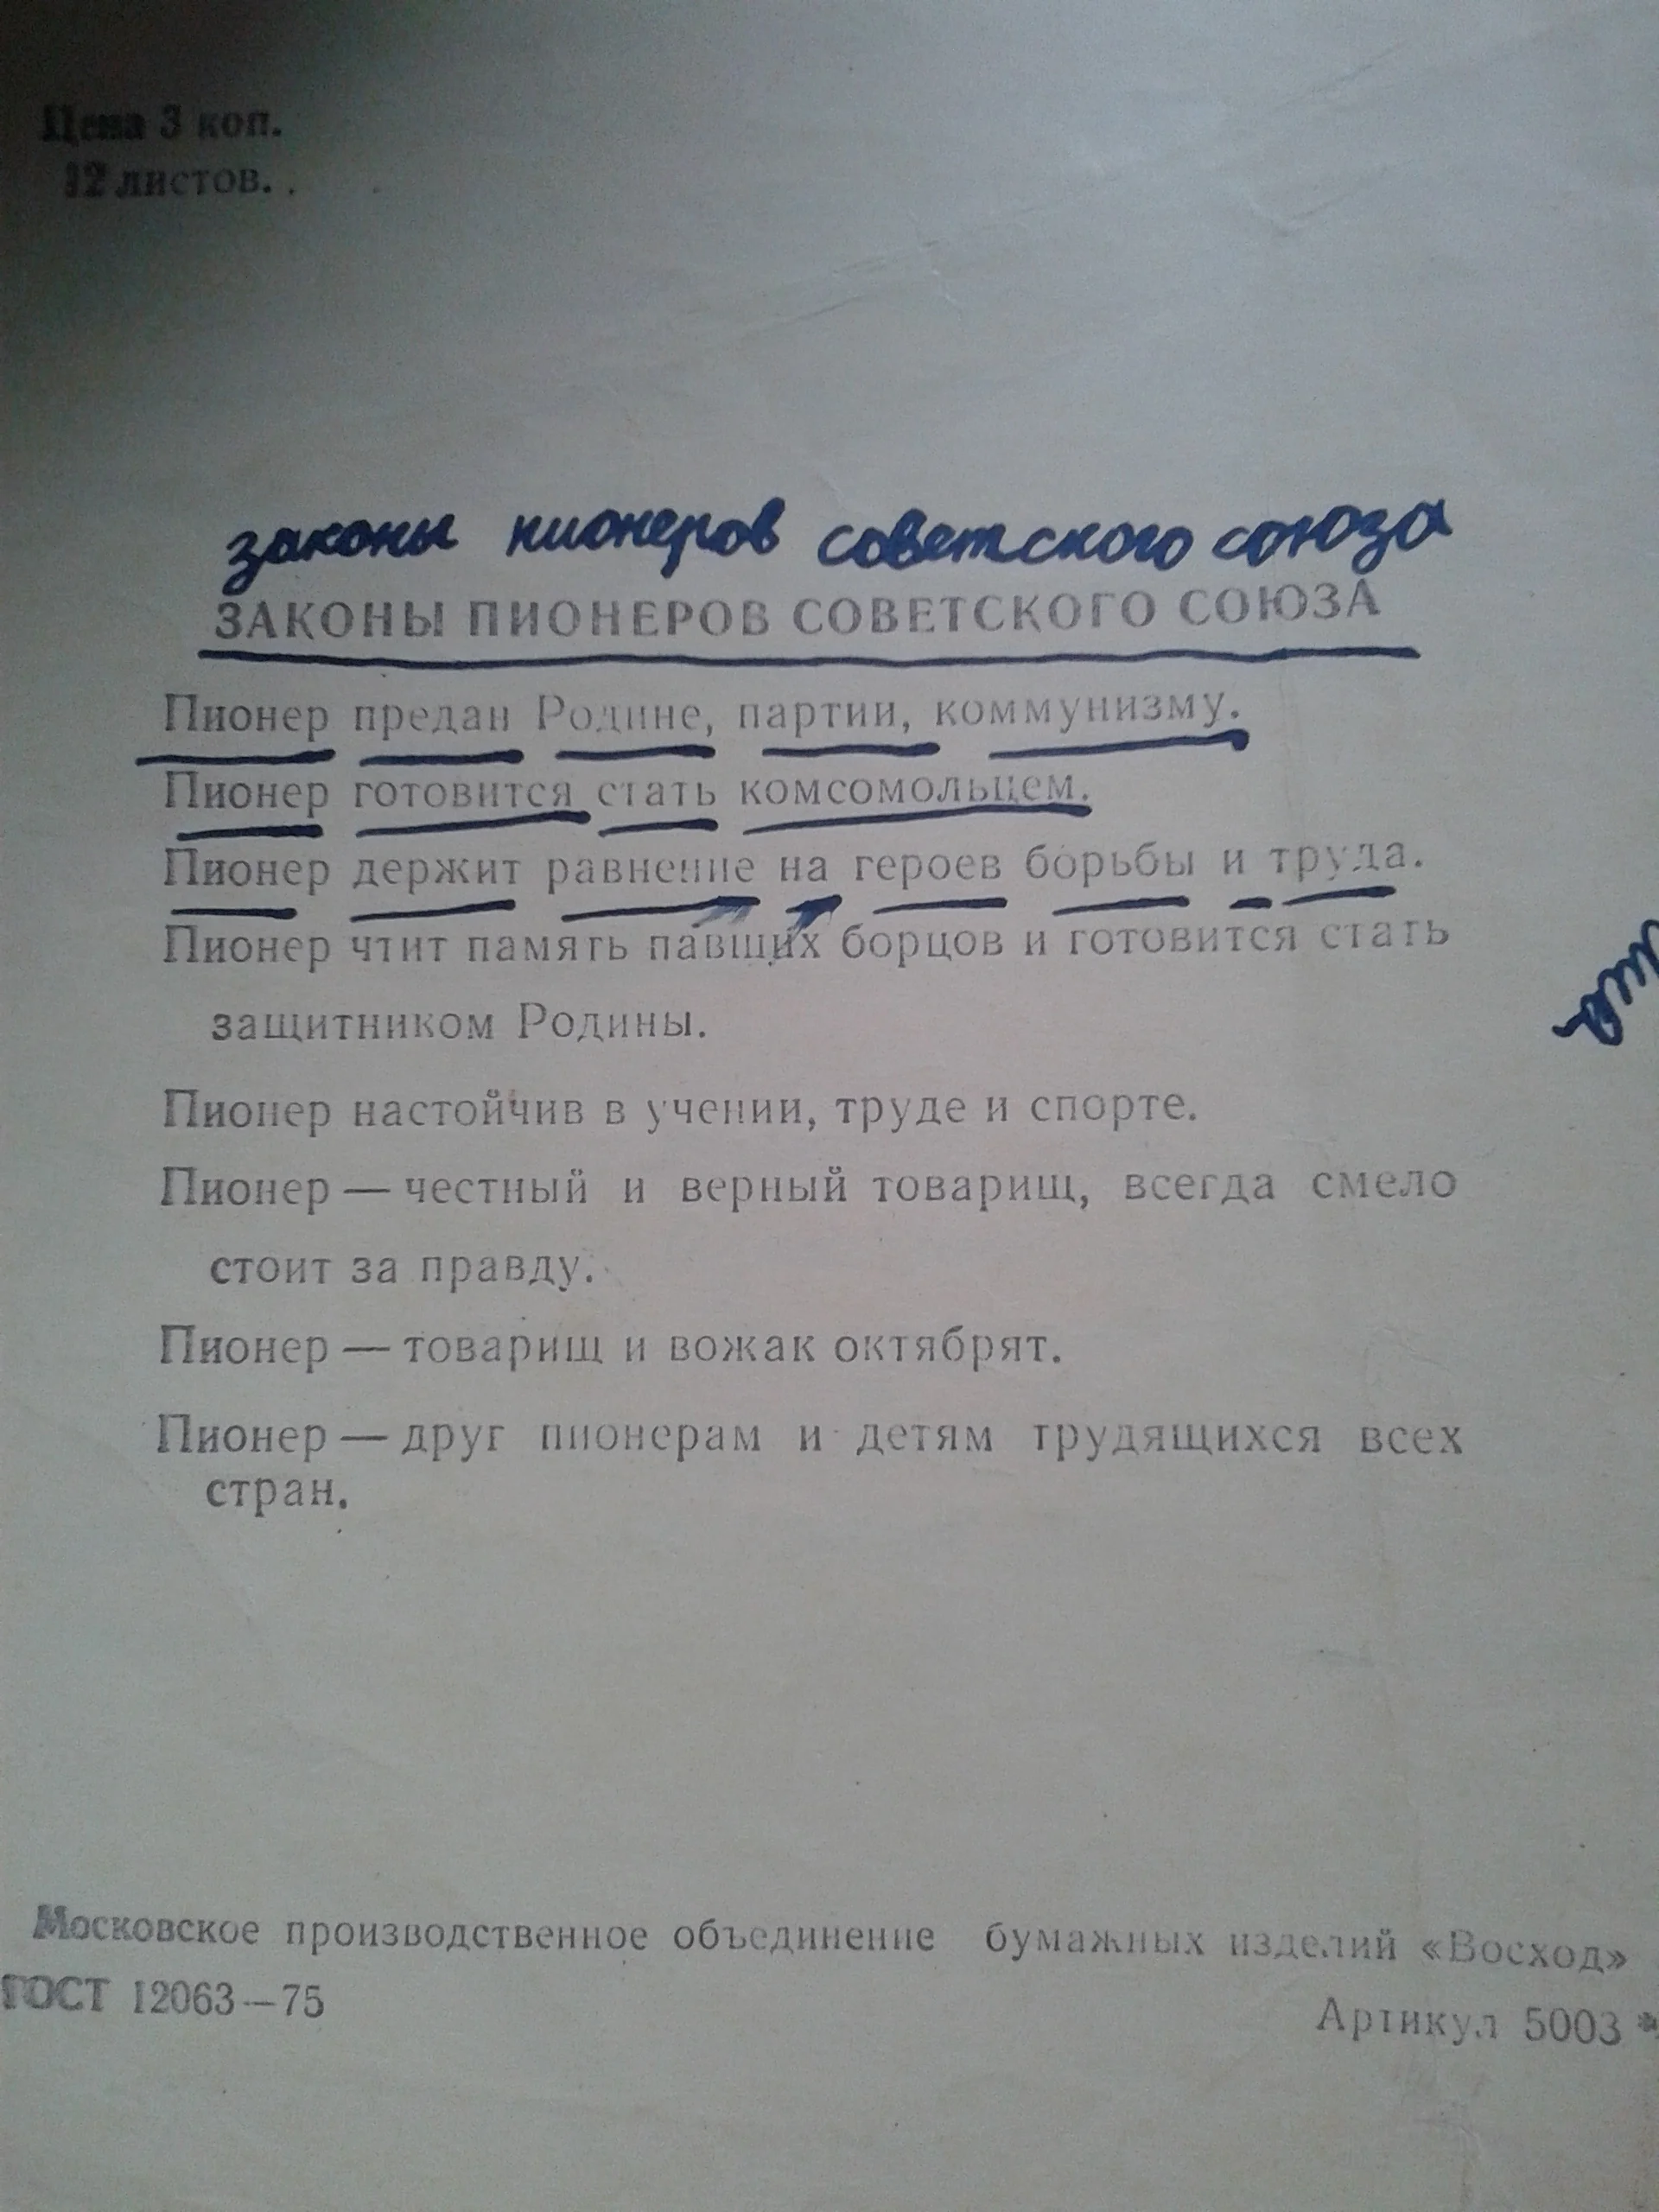 Цена 3 коп.
12 листов.
законы пионеров советского союза
ЗАКОНЫ ПИОНЕРОВ СОВЕТСКОГО СОЮЗА
Пионер предан Родине, партии, коммунизму.
Пионер готовится стать комсомольцем.
Пионер держит равнение на героев борьбы и труда.
Пионер чтит память павших борцов и готовится стать
защитником Родины.
Пионер настойчив в учении, труде и спорте.
Пионер — честный и верный товарищ, всегда смело
стоит за правду.
Пионер — товарищ и вожак октябрят.
Пионер — друг пионерам и детям трудящихся всех
стран.
Московское производственное объединение бумажных изделий «Восход»
ГОСТ 12063—75
Артикул 5003 *